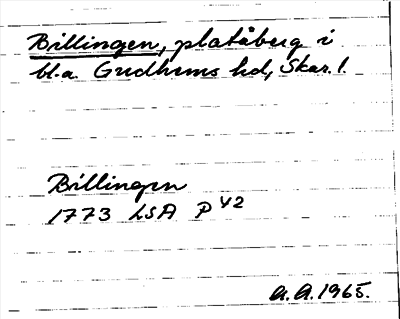 Billingen, platåberg i
bl.a. Gudhems hd, Skar. l.
Billingen
1773 LSA P 42
A.A. 1965.